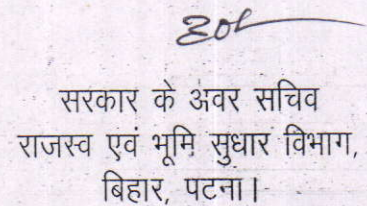 सरकार के अवर सचिव
राजस्व एवं भूमि सुधार विभाग,
बिहार, पटना।